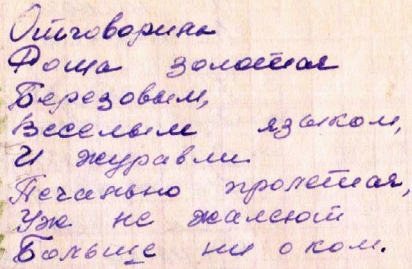 Отговорила
Роща золотая
Березовым,
Веселым языком,
И журавли
Печально пролетая,
Уж не жалеют
Больше ни о ком.